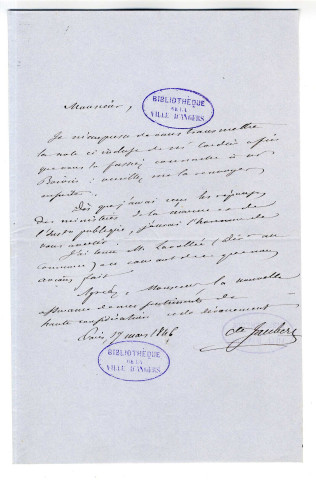 Monsieur,
BIBLIOTHÈQUE
DE LA
VILLE D'ANGERS
Je m'empresse de vous transmettre
la note ci incluse de Mr
que vous la fassiez connaître à
veuillez me la renvoyer
ensuite.
Dès que j'aurai reçu les réponses
des ministères de la marine et de
l'Inst. publique, j'aurai l'honneur de
vous avertir.
J'ai tenu M. Lavallée
au courant de ce que nous
avions fait.
Agréez, Monsieur, la nouvelle
assurance de mes sentiments de
haute considération et de dévouement
Paris, 17 mars 1846
Cte Jaubert
BIBLIOTHÈQUE
DE LA
VILLE D'ANGERS